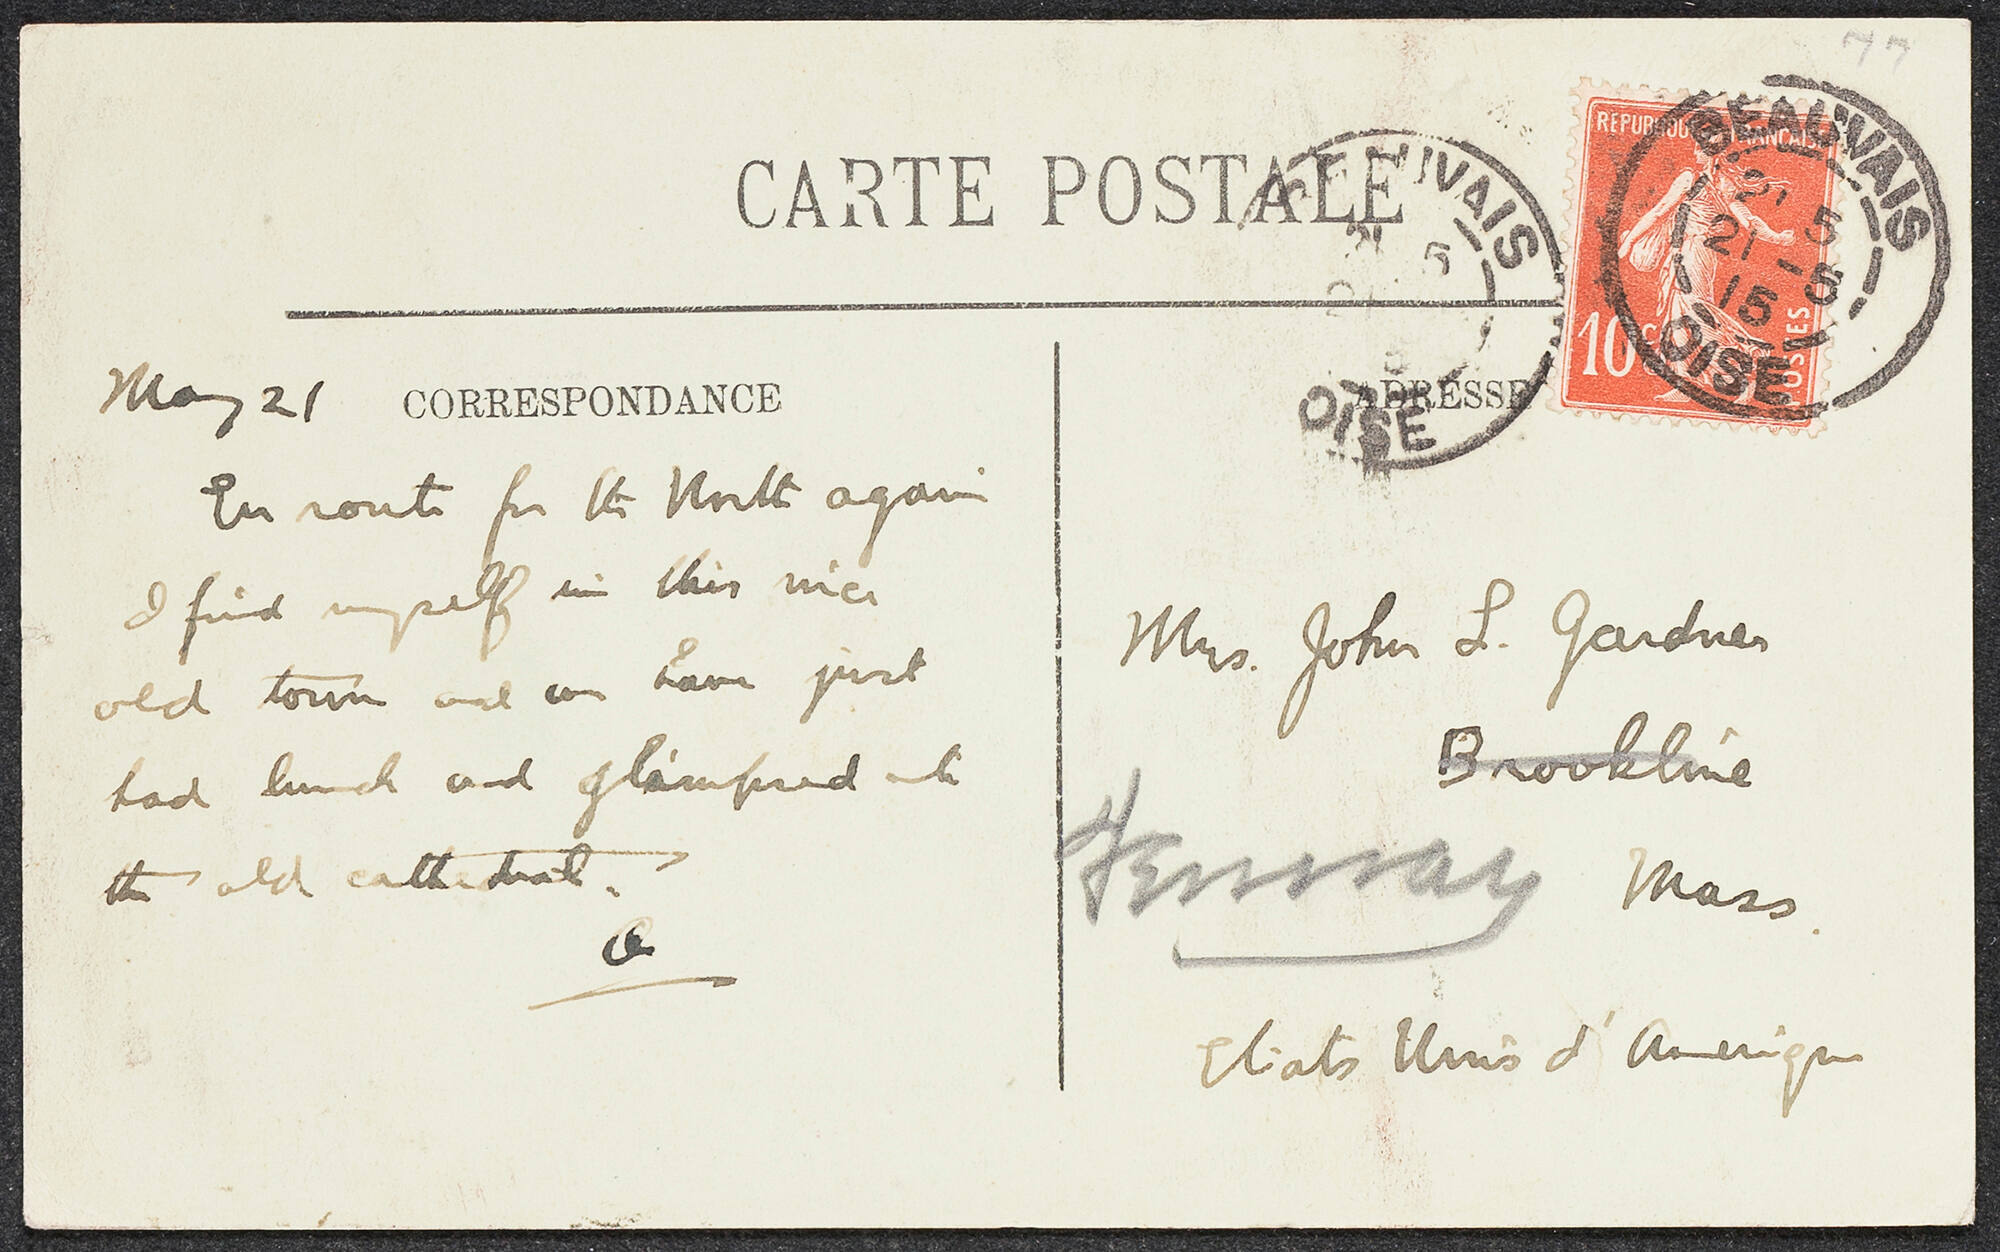 77
CARTE POSTALE
BEAUVAIS
21 5
OISE
REPUBLIQUE FRANCAISE
10 c
POSTES
BEAUVAIS
21 5
21 - 5
15
OISE
May 21
CORRESPONDANCE
En route for the North again
I find myself in this nice
old town and we have just
had lunch and glimpsed at
the old cathedral.
A
ADRESSE
Mrs. John L. Gardner
Brookline
Fenway
Mass.
Etiats Unis d'Amerique